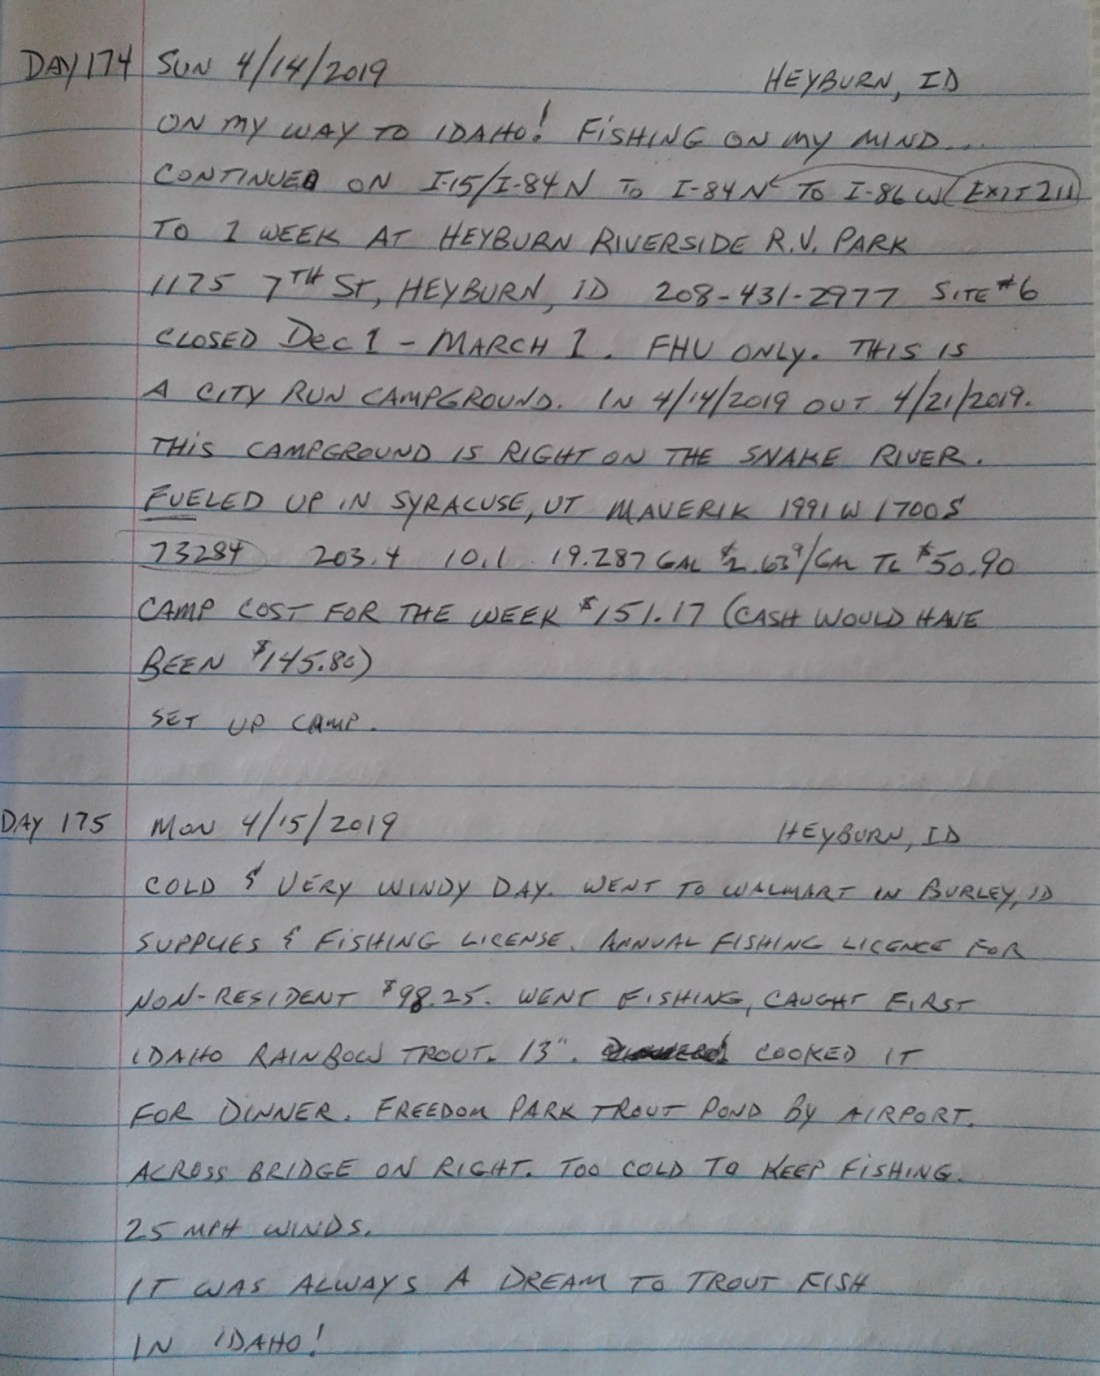 DAY 174 SUN 4/14/2019 HEYBURN, ID
ON MY WAY TO IDAHO! FISHING ON MY MIND...
CONTINUED ON I-15/I-84 N TO I-84 N TO I-86 W (EXIT 211)
TO 1 WEEK AT HEYBURN RIVERSIDE R.V. PARK
1175 7TH ST, HEYBURN, ID 208-431-2977 SITE #6
CLOSED DEC 1 - MARCH 1. FHU ONLY. THIS IS
A CITY RUN CAMPGROUND. IN 4/14/2019 OUT 4/21/2019.
THIS CAMPGROUND IS RIGHT ON THE SNAKE RIVER.
FUELED UP IN SYRACUSE, UT MAVERIK 1991 W 1700 S
73284 203.4 10.1 19.287 GAL $2.63⁹/GAL TL $50.90
CAMP COST FOR THE WEEK $151.17 (CASH WOULD HAVE
BEEN $145.80)
SET UP CAMP.
DAY 175 MON 4/15/2019 HEYBURN, ID
COLD & VERY WINDY DAY. WENT TO WALMART IN BURLEY, ID
SUPPLIES & FISHING LICENSE. ANNUAL FISHING LICENCE FOR
NON-RESIDENT $98.25. WENT FISHING, CAUGHT FIRST
IDAHO RAINBOW TROUT. 13". COOKED IT
FOR DINNER. FREEDOM PARK TROUT POND BY AIRPORT.
ACROSS BRIDGE ON RIGHT. TOO COLD TO KEEP FISHING.
25 MPH WINDS.
IT WAS ALWAYS A DREAM TO TROUT FISH
IN IDAHO!